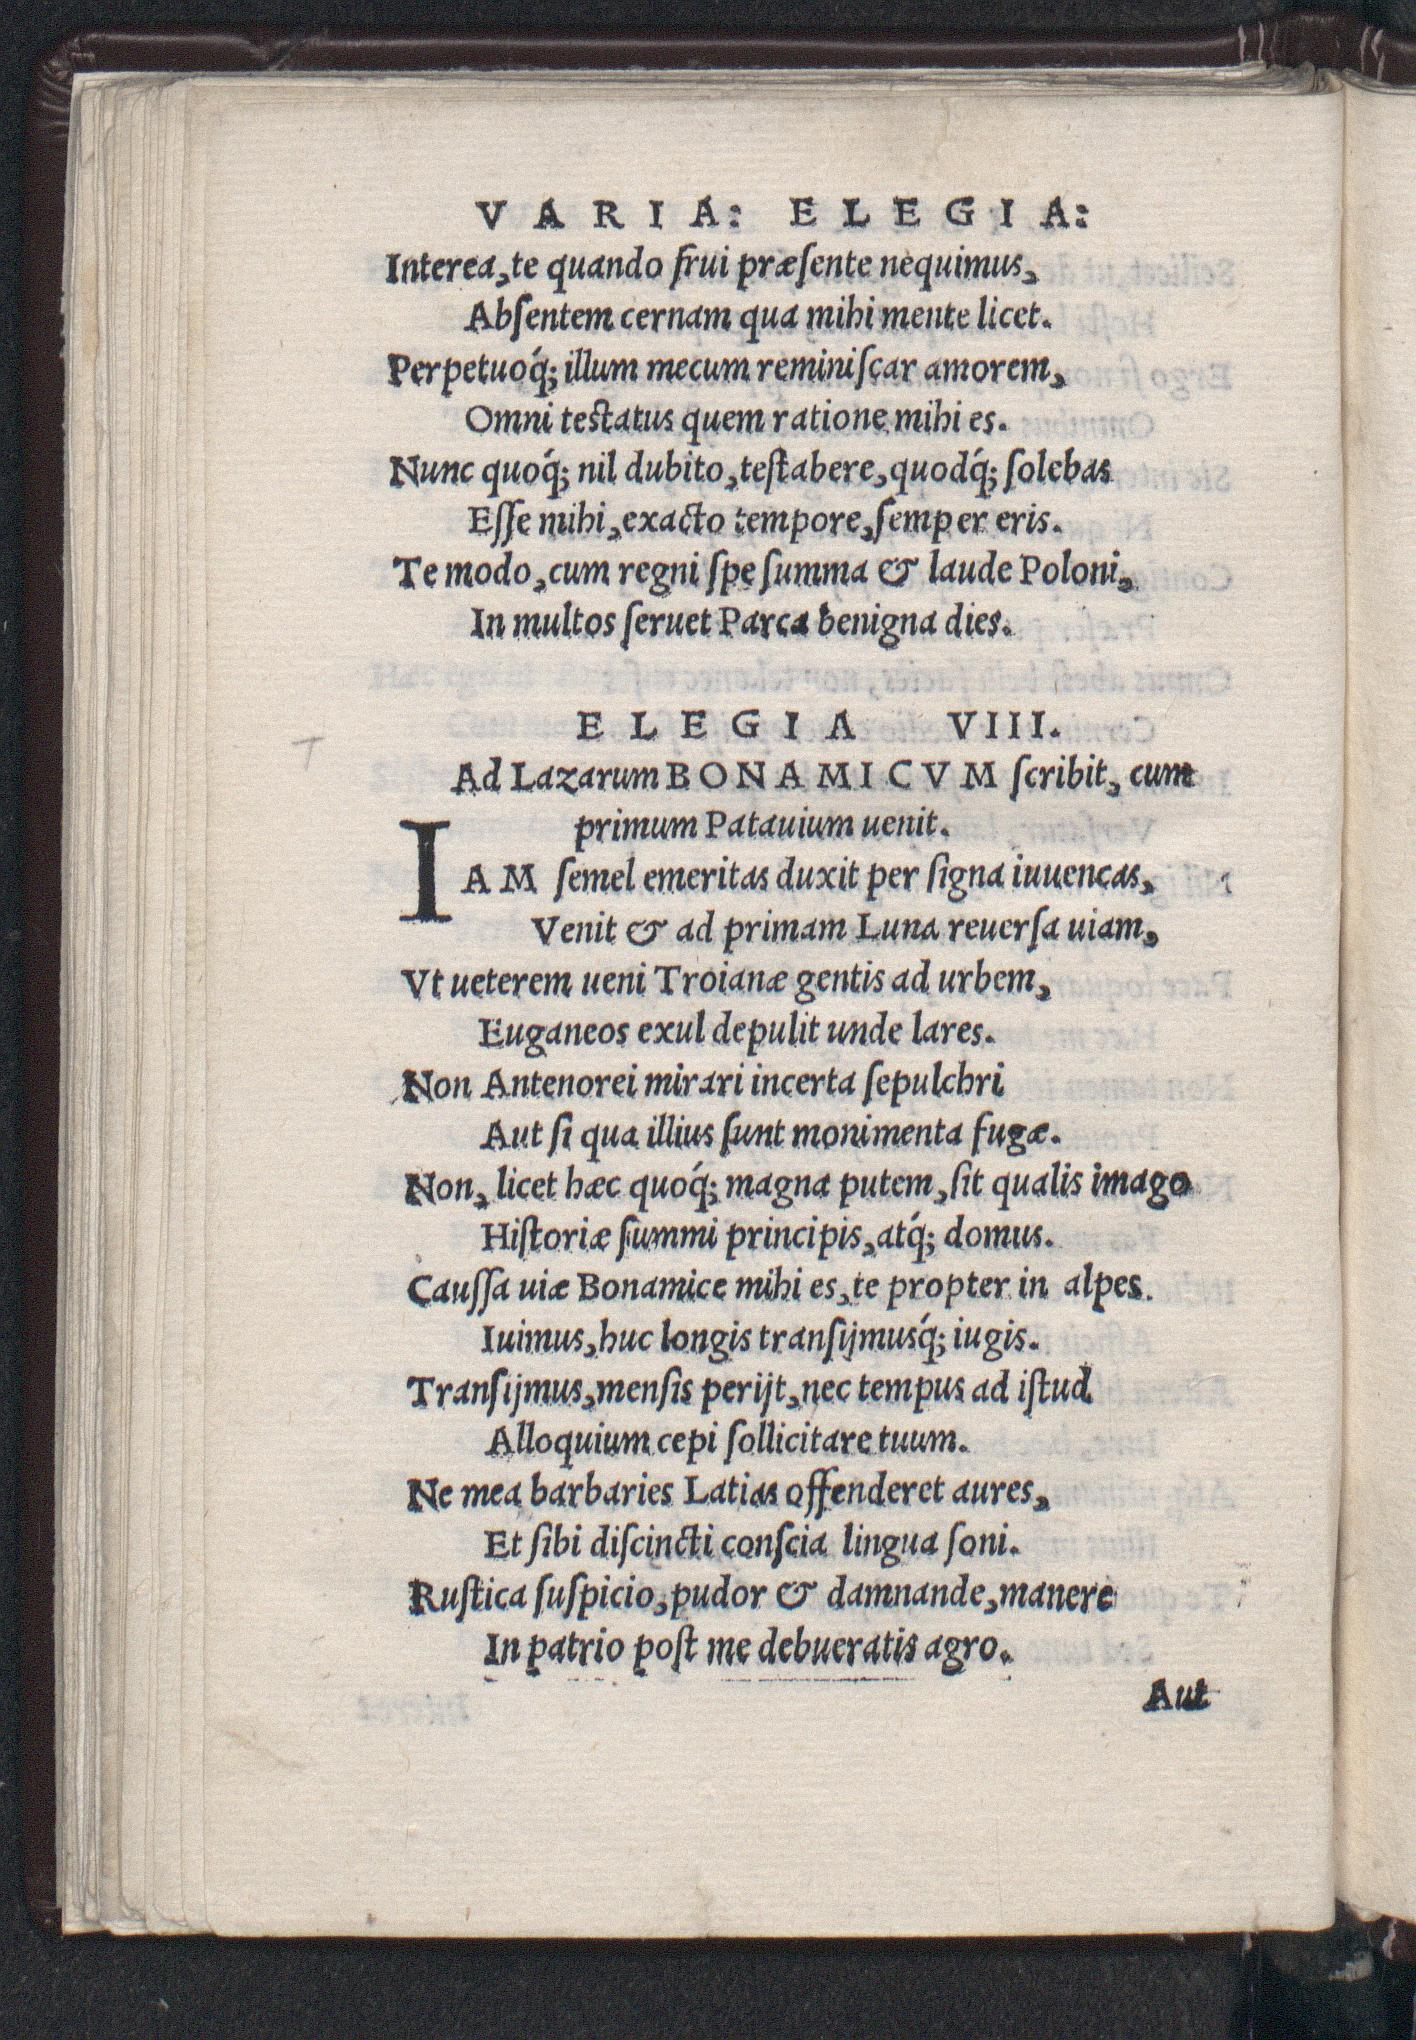 VARIA: ELEGIA:
Interea, te quando frui præſente nequimus,
Abſentem cernam qua mihi mente licet.
Perpetuoq́; illum mecum reminiſcar amorem,
Omni teſtatus quem ratione mihi es.
Nunc quoq́; nil dubito, teſtabere, quodq́; ſolebas
Eſſe mihi, exacto tempore, ſemper eris.
Te modo, cum regni ſpe ſumma & laude Poloni,
In multos ſeruet Parca benigna dies.
ELEGIA VIII.
Ad Lazarum BONAMICVM ſcribit, cum
primum Patauium uenit.
IAM ſemel emeritas duxit per ſigna iuuencas,
Venit & ad primam Luna reuerſa uiam,
Vt ueterem ueni Troianæ gentis ad urbem,
Euganeos exul depulit unde lares.
Non Antenorei mirari incerta ſepulchri
Aut ſi qua illius ſunt monimenta fugæ.
Non, licet hæc quoq́; magna putem, ſit qualis imago
Hiſtoriæ ſummi principis, atq́; domus.
Cauſſa uiæ Bonamice mihi es, te propter in alpes
Iuimus, huc longis tranſijmusq́; iugis.
Tranſijmus, menſis perijt, nec tempus ad iſtud
Alloquium cepi ſollicitare tuum.
Ne mea barbaries Latias offenderet aures,
Et ſibi diſcincti conſcia lingua ſoni.
Ruſtica ſuſpicio, pudor & damnande, manere
In patrio poſt me debueratis agro.
Aut